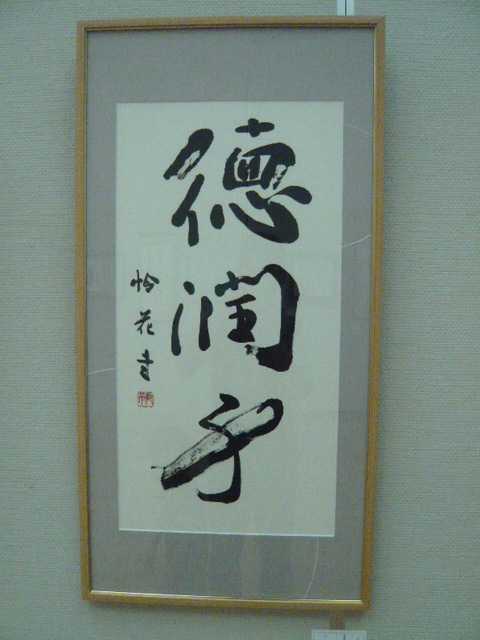 徳潤身
怜花書